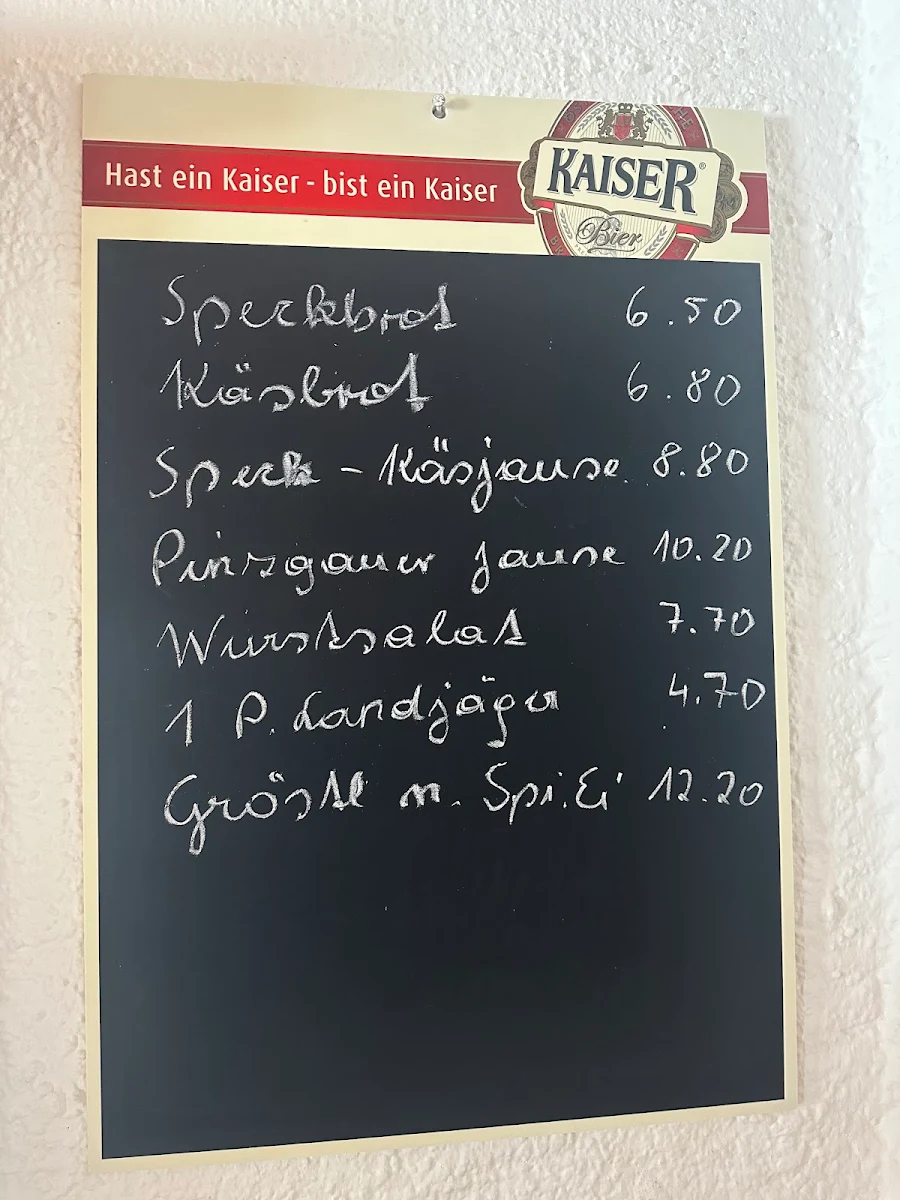 Hast ein Kaiser - bist ein Kaiser
KAISER®
Bier
Speckbrot 6.50
Käsbrot 6.80
Speck - Käsjause 8.80
Pinzgauer Jause 10.20
Wurstsalat 7.70
1 P. Landjäger 4.70
Gröstl m. Spi.Ei 12.20